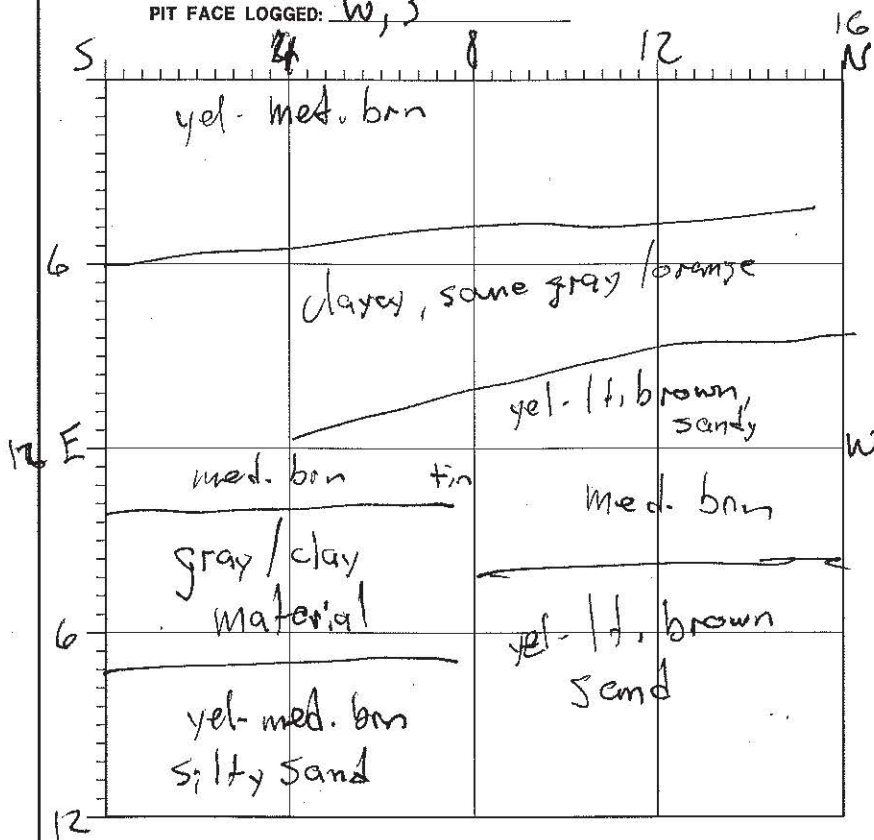 PIT FACE LOGGED: W, S
S 4 8 12 16 N
yel- med. brn
6
clayey, some gray / orange
yel- lt. brown,
sandy
12 E W
med. brn tin
med. brn
gray / clay
material
6
yel- lt. brown
sand
yel- med. brn
silty sand
12